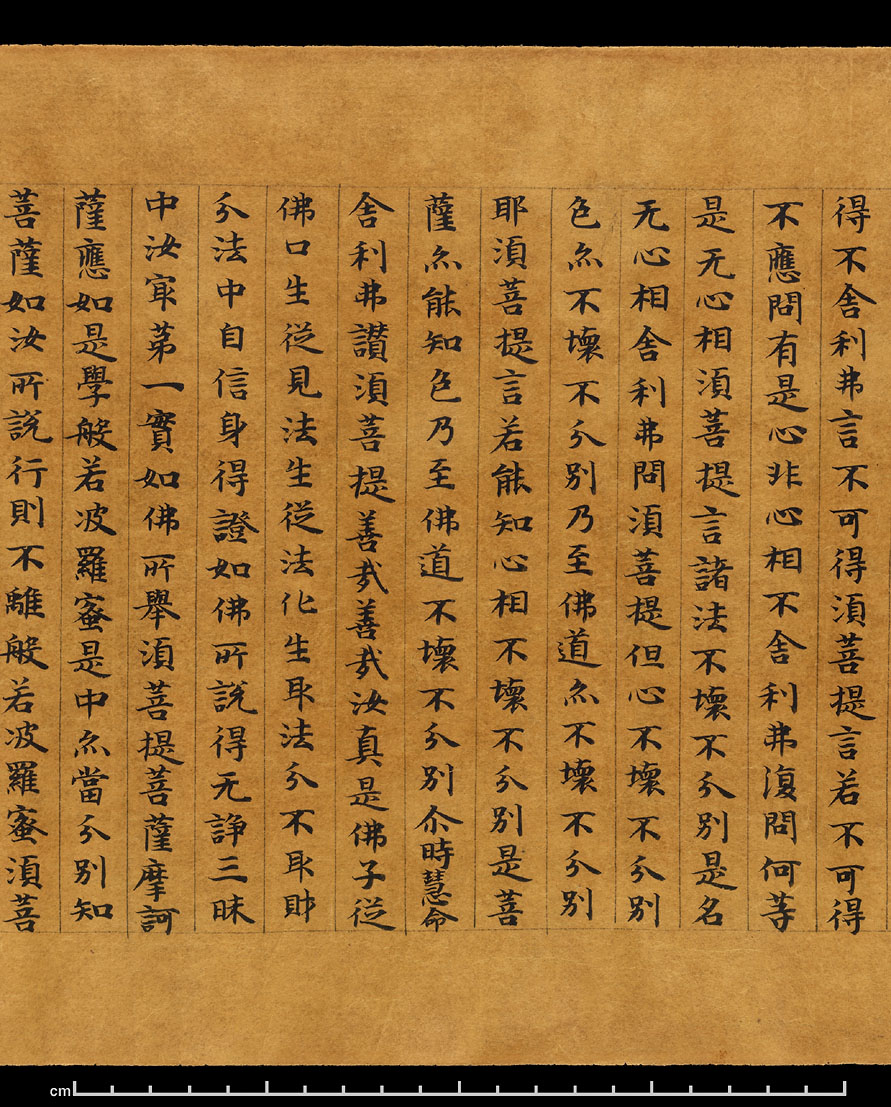 得不舍利弗言不可得須菩提言若不可得
不應問有是心非心相不舍利弗復問何等
是无心相須菩提言諸法不壞不分別是名
无心相舍利弗問須菩提但心不壞不分別
色亦不壞不分別乃至佛道亦不壞不分別
耶須菩提言若能知心相不壞不分別是菩
薩亦能知色乃至佛道不壞不分別尒時慧命
舍利弗讚須菩提善哉善哉汝真是佛子從
佛口生從見法生從法化生取法分不取財
分法中自信身得證如佛所說得无諍三昧
中汝冣苐一實如佛所舉須菩提菩薩摩訶
薩應如是學般若波羅蜜是中亦當分別知
菩薩如汝所說行則不離般若波羅蜜須菩
cm